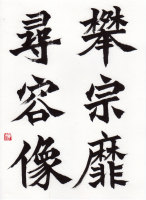 攀宗靡
尋容像